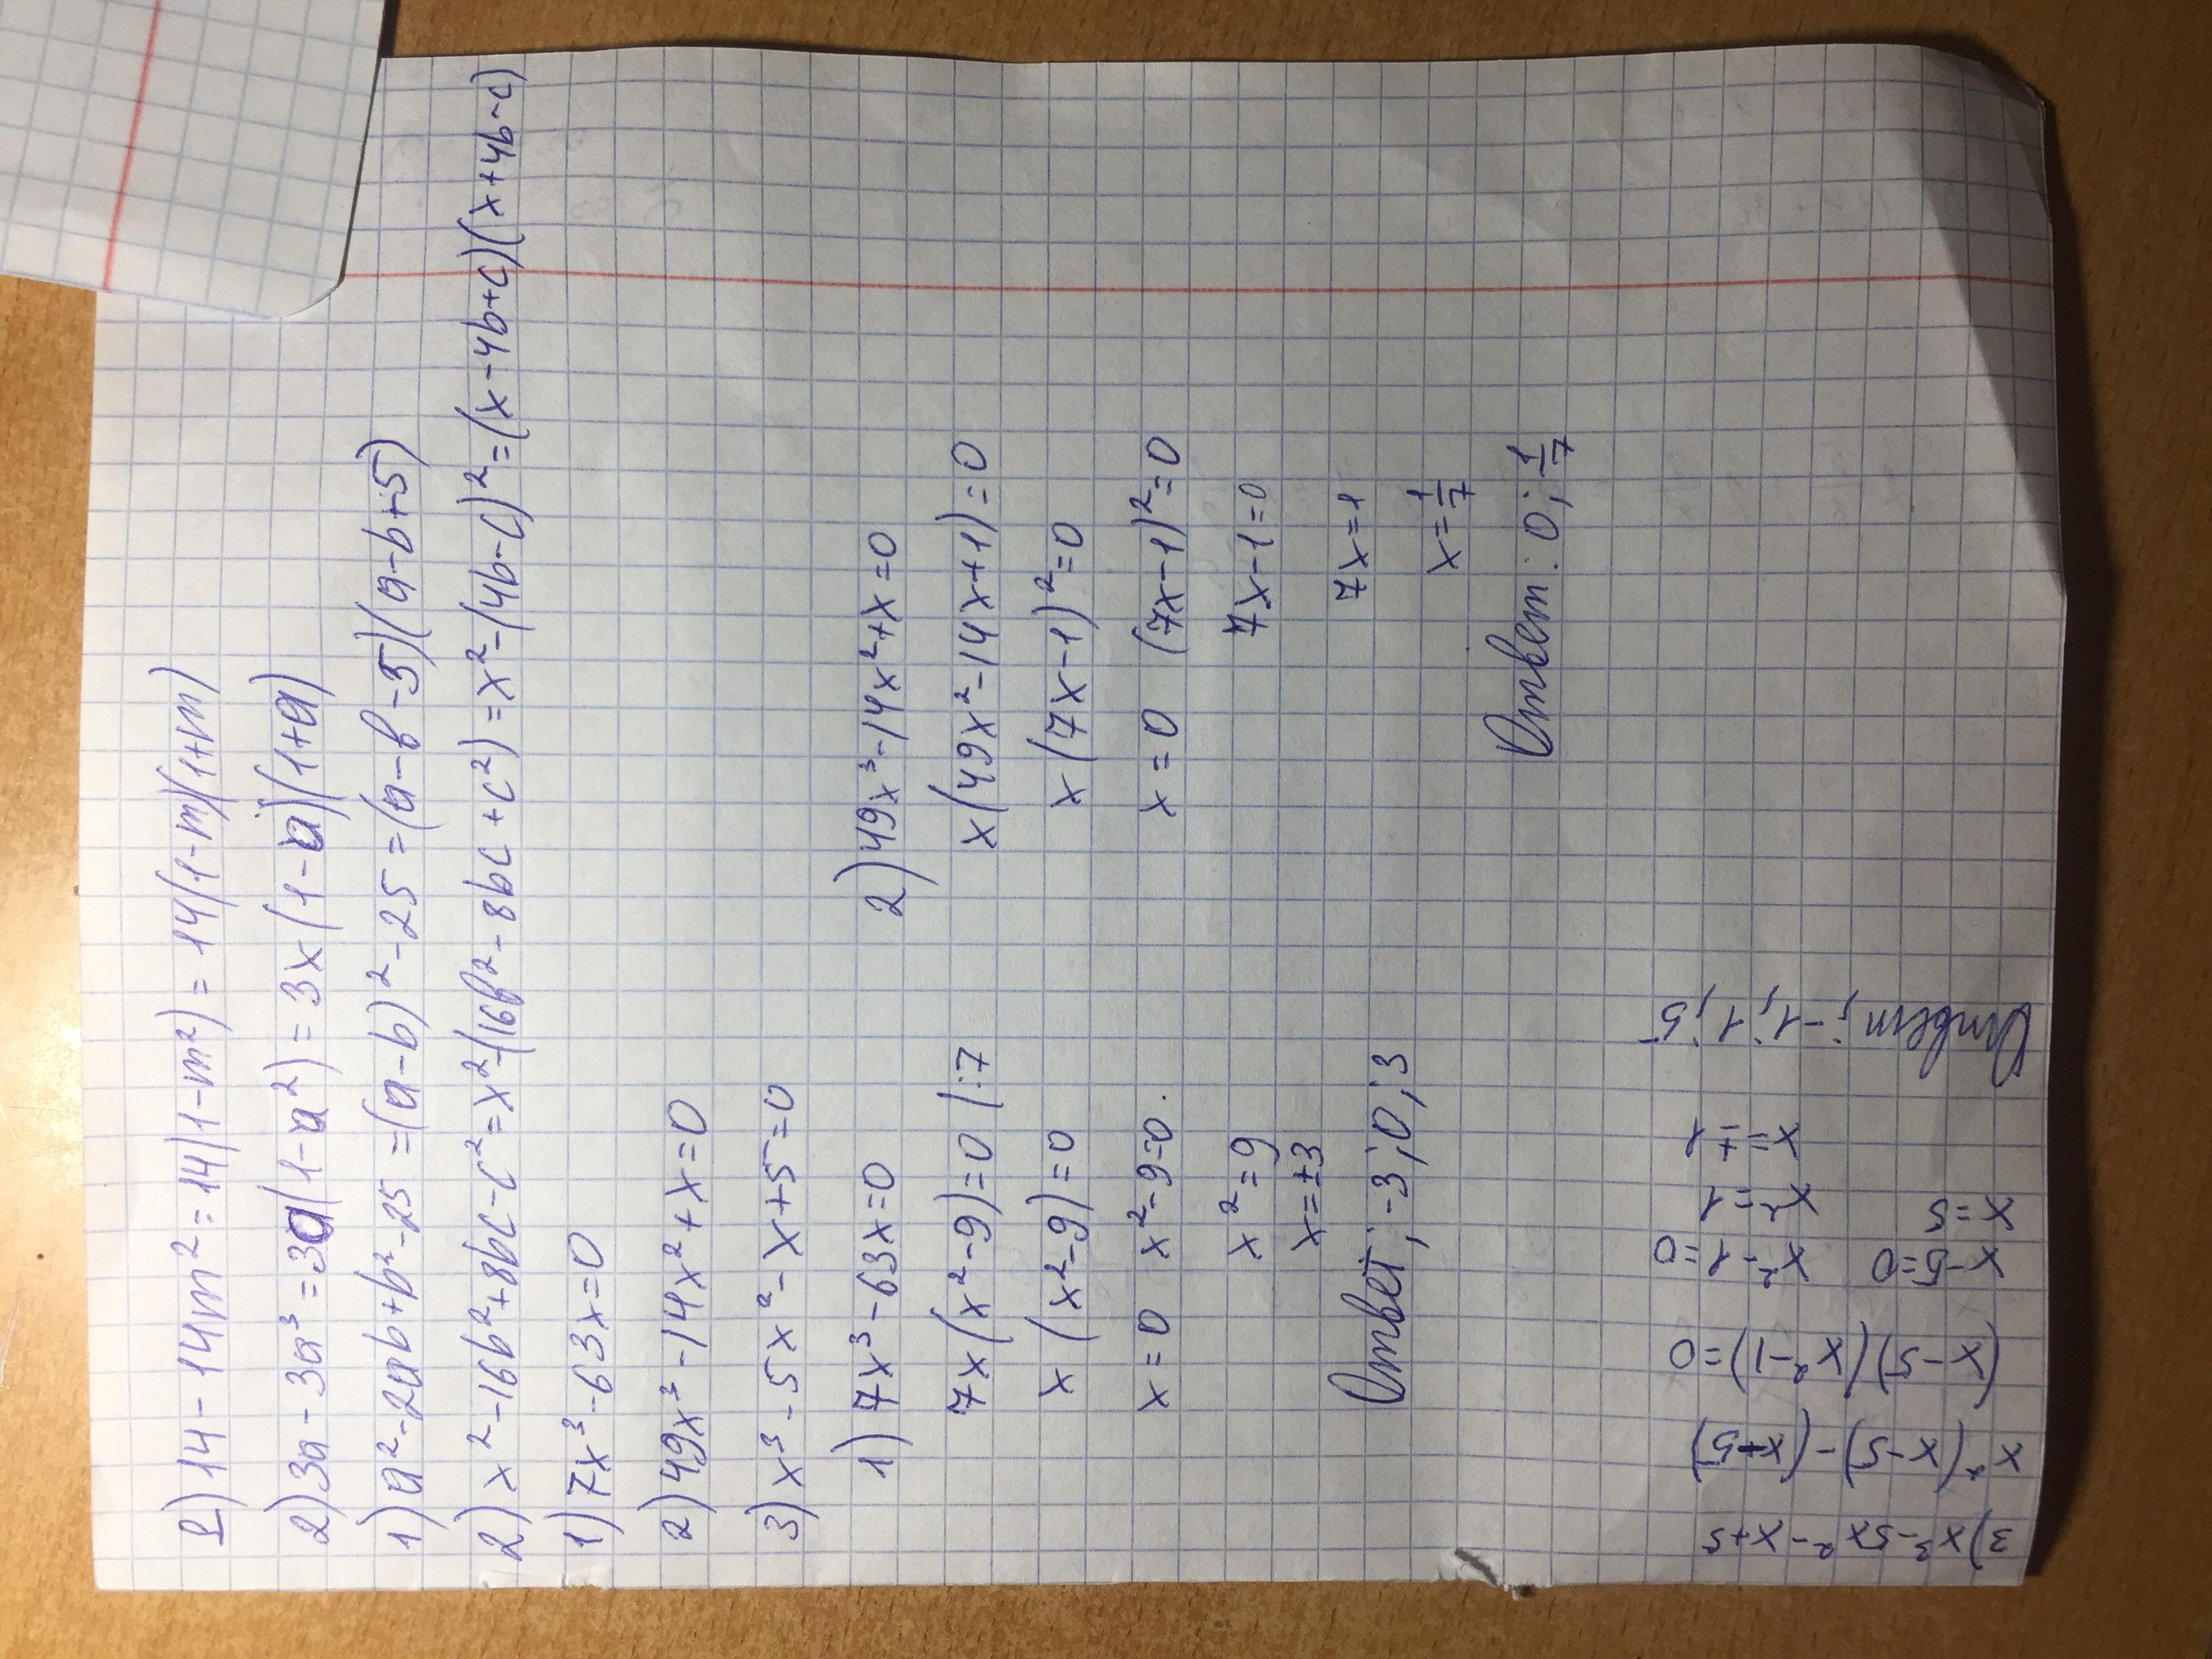 1) 14 - 14m² = 14(1-m²) = 14(1-m)(1+m)
2) 3a - 3a³ = 3a(1-a²) = 3x(1-a)(1+a)
1) a²-2ab+b²-25 = (a-b)²-25 = (a-b-5)(a-b+5)
2) x²-16b²+8bc-c² = x²-(16b²-8bc+c²) = x²-(4b-c)² = (x-4b+c)(x+4b-c)
1) 7x³-63x=0
2) 49x³-14x²+x=0
3) x³-5x²-x+5=0
1) 7x³-63x=0
7x(x²-9)=0 |:7
x(x²-9)=0
x=0 x²-9=0.
x²=9
x=±3
Ответ; -3; 0; 3
2) 49x³-14x²+x=0
x(49x²-14x+1)=0
x(7x-1)²=0
x=0 (7x-1)²=0
7x-1=0
7x=1
x=1/7
Ответ: 0; 1/7
3) x³-5x²-x+5
x²(x-5)-(x+5)
(x-5)(x²-1)=0
x-5=0 x²-1=0
x=5 x²=1
x=±1
Ответ; -1; 1; 5